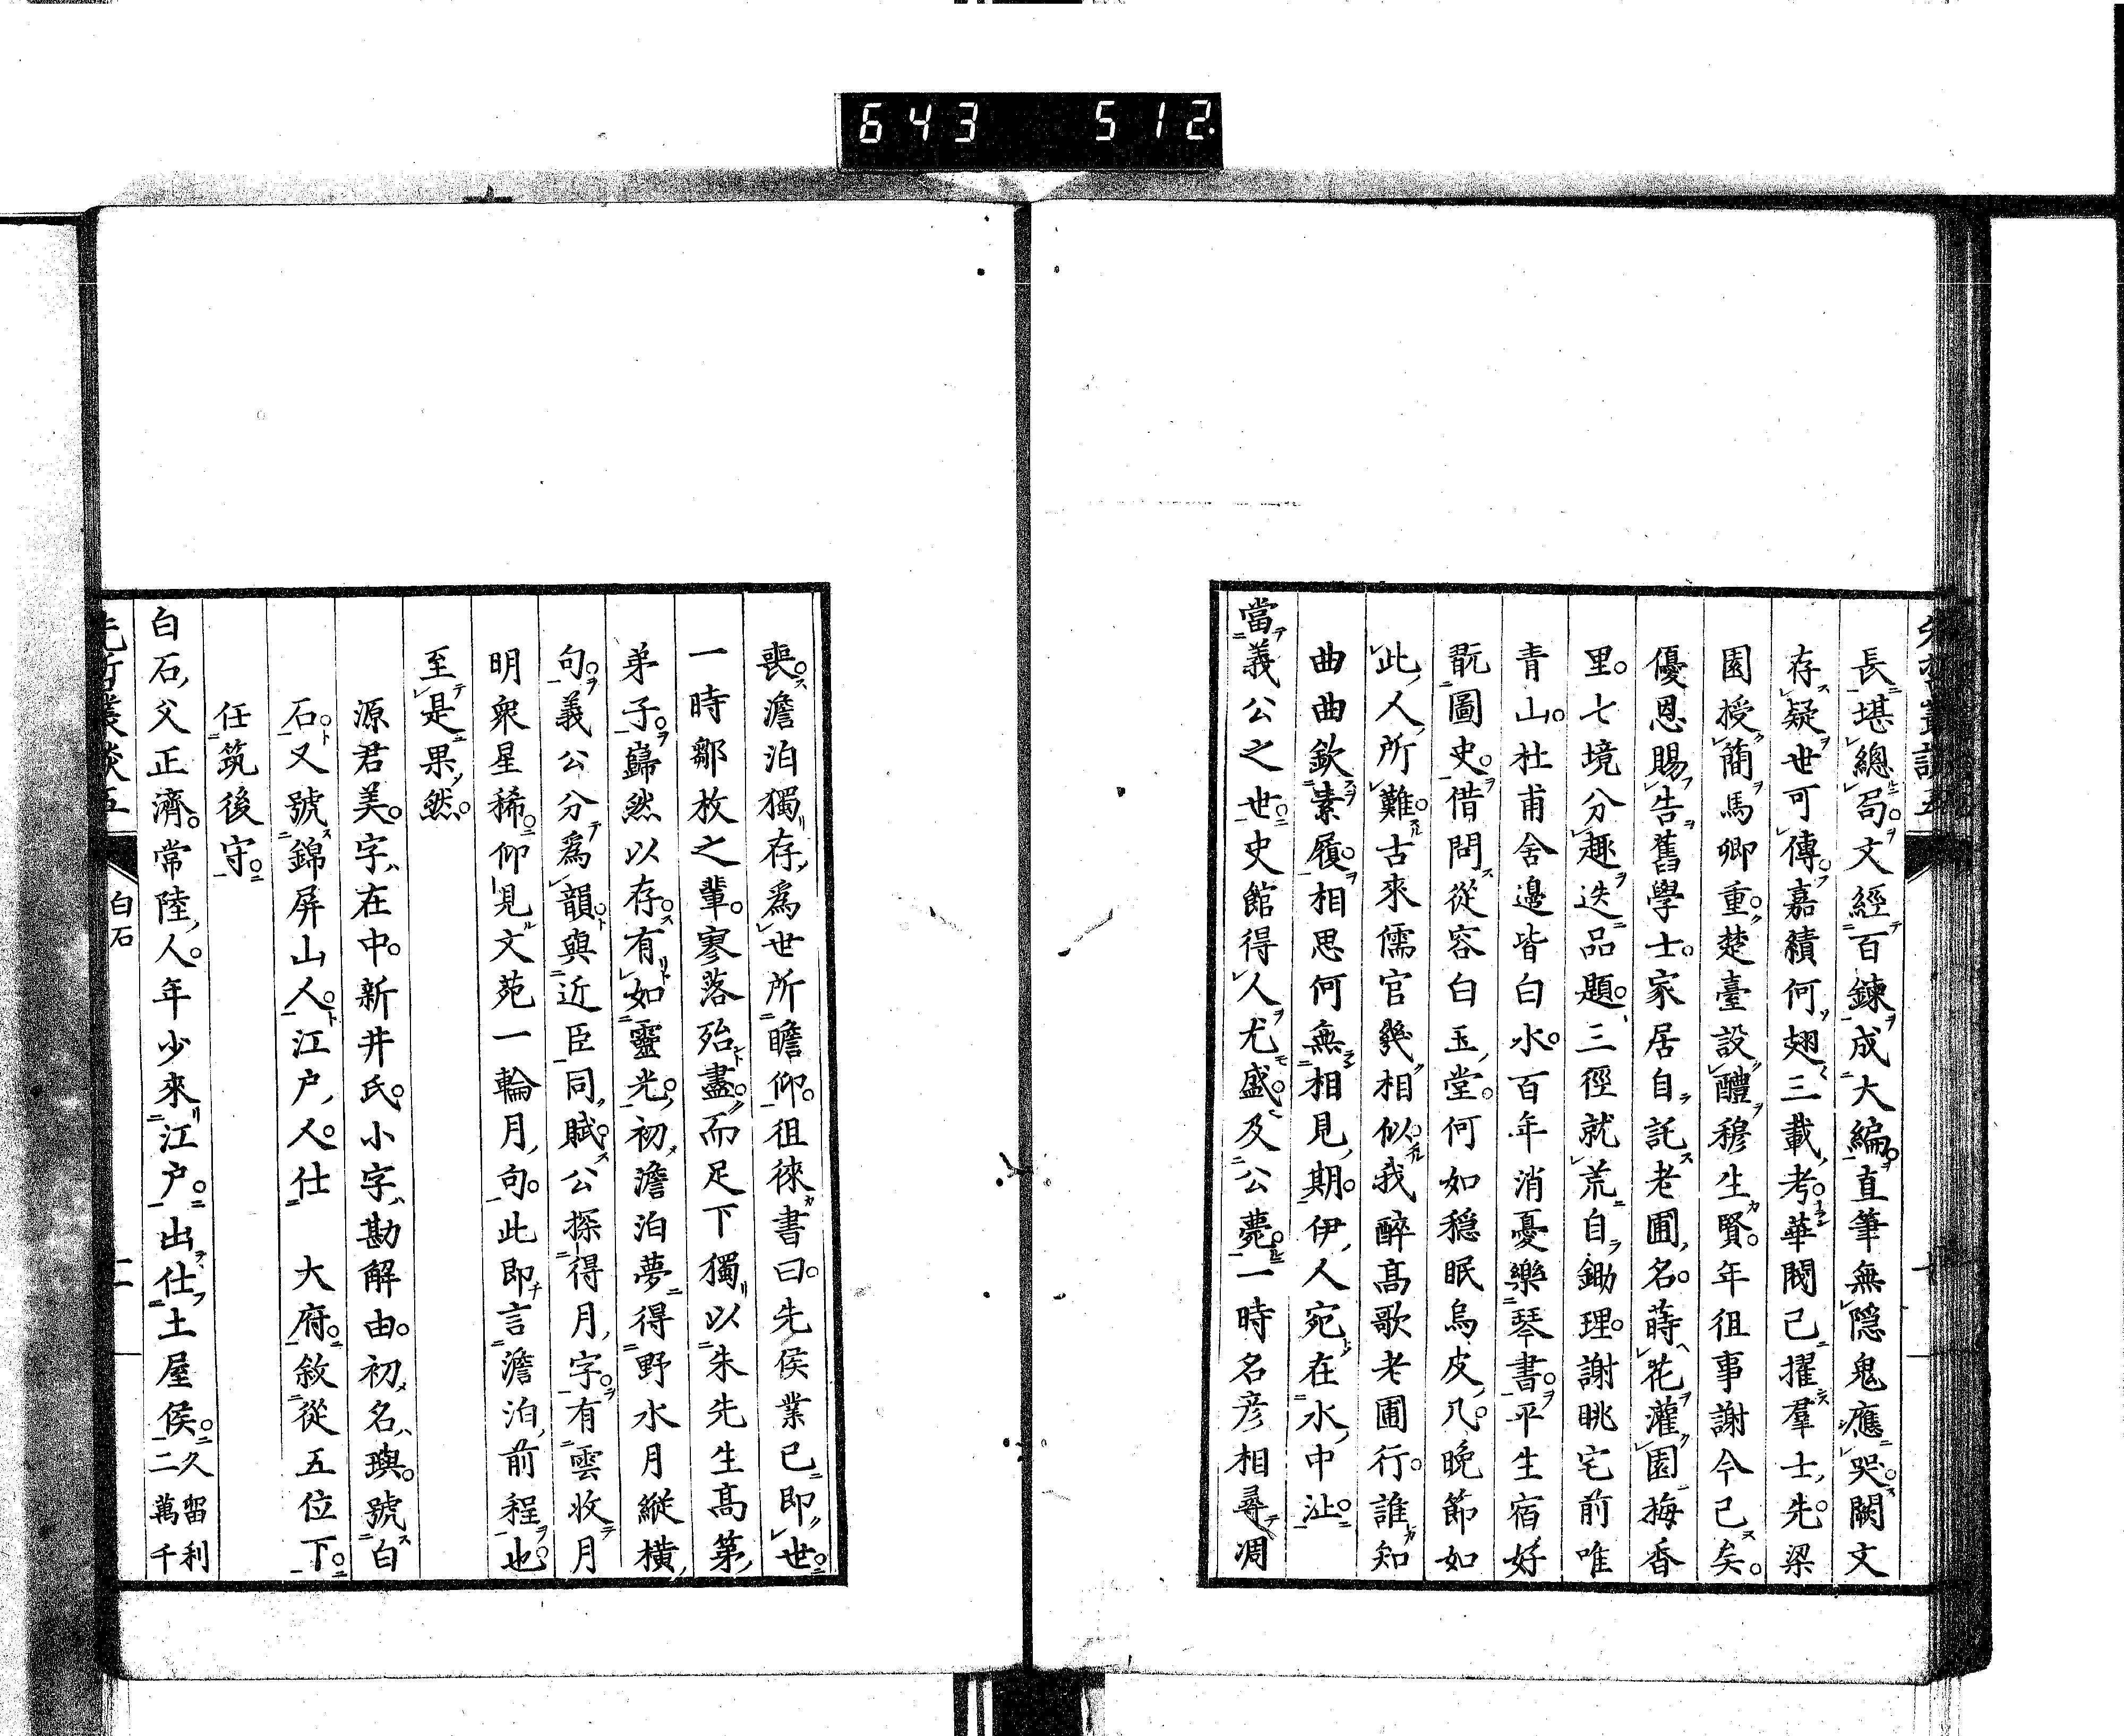 643 512
長堪總局文經百鍊成大編直筆無隱鬼應哭闕文
存疑世可傳嘉績何翅三載考華閥已擢羣士先梁
園授簡馬卿重楚臺設醴穆生賢年徂事謝今已矣
優恩賜告舊學士家居自託老圃名蒔花灌園梅香
里七境分趣迭品題三徑就荒自鋤理謝眺宅前唯
青山杜甫舍邊皆白水百年消憂樂琴書平生宿好
翫圖史借問從容白玉堂何如穩眠烏皮几晚節如
此人所難古來儒官幾相似我醉高歌老圃行誰知
曲曲欽素履相思何無相見期伊人宛在水中沚
當義公之世史館得人尤盛及公薨一時名彦相尋凋
喪澹泊獨存爲世所瞻仰徂徠書曰先侯業已即世
一時鄒枚之輩寥落殆盡而足下獨以朱先生高第
弟子巋然以存有如靈光初澹泊夢得野水月縱橫
句義公分爲韻與近臣同賦公探得月字有雲收月
明衆星稀仰見文苑一輪月句此即言澹泊前程也
至是果然
源君美字在中新井氏小字勘解由初名璵號白
石又號錦屏山人江戸人仕 大府敘從五位下
任筑後守
白石父正濟常陸人年少來江戸出仕土屋侯久留利二萬千
先哲叢談五
白石
二